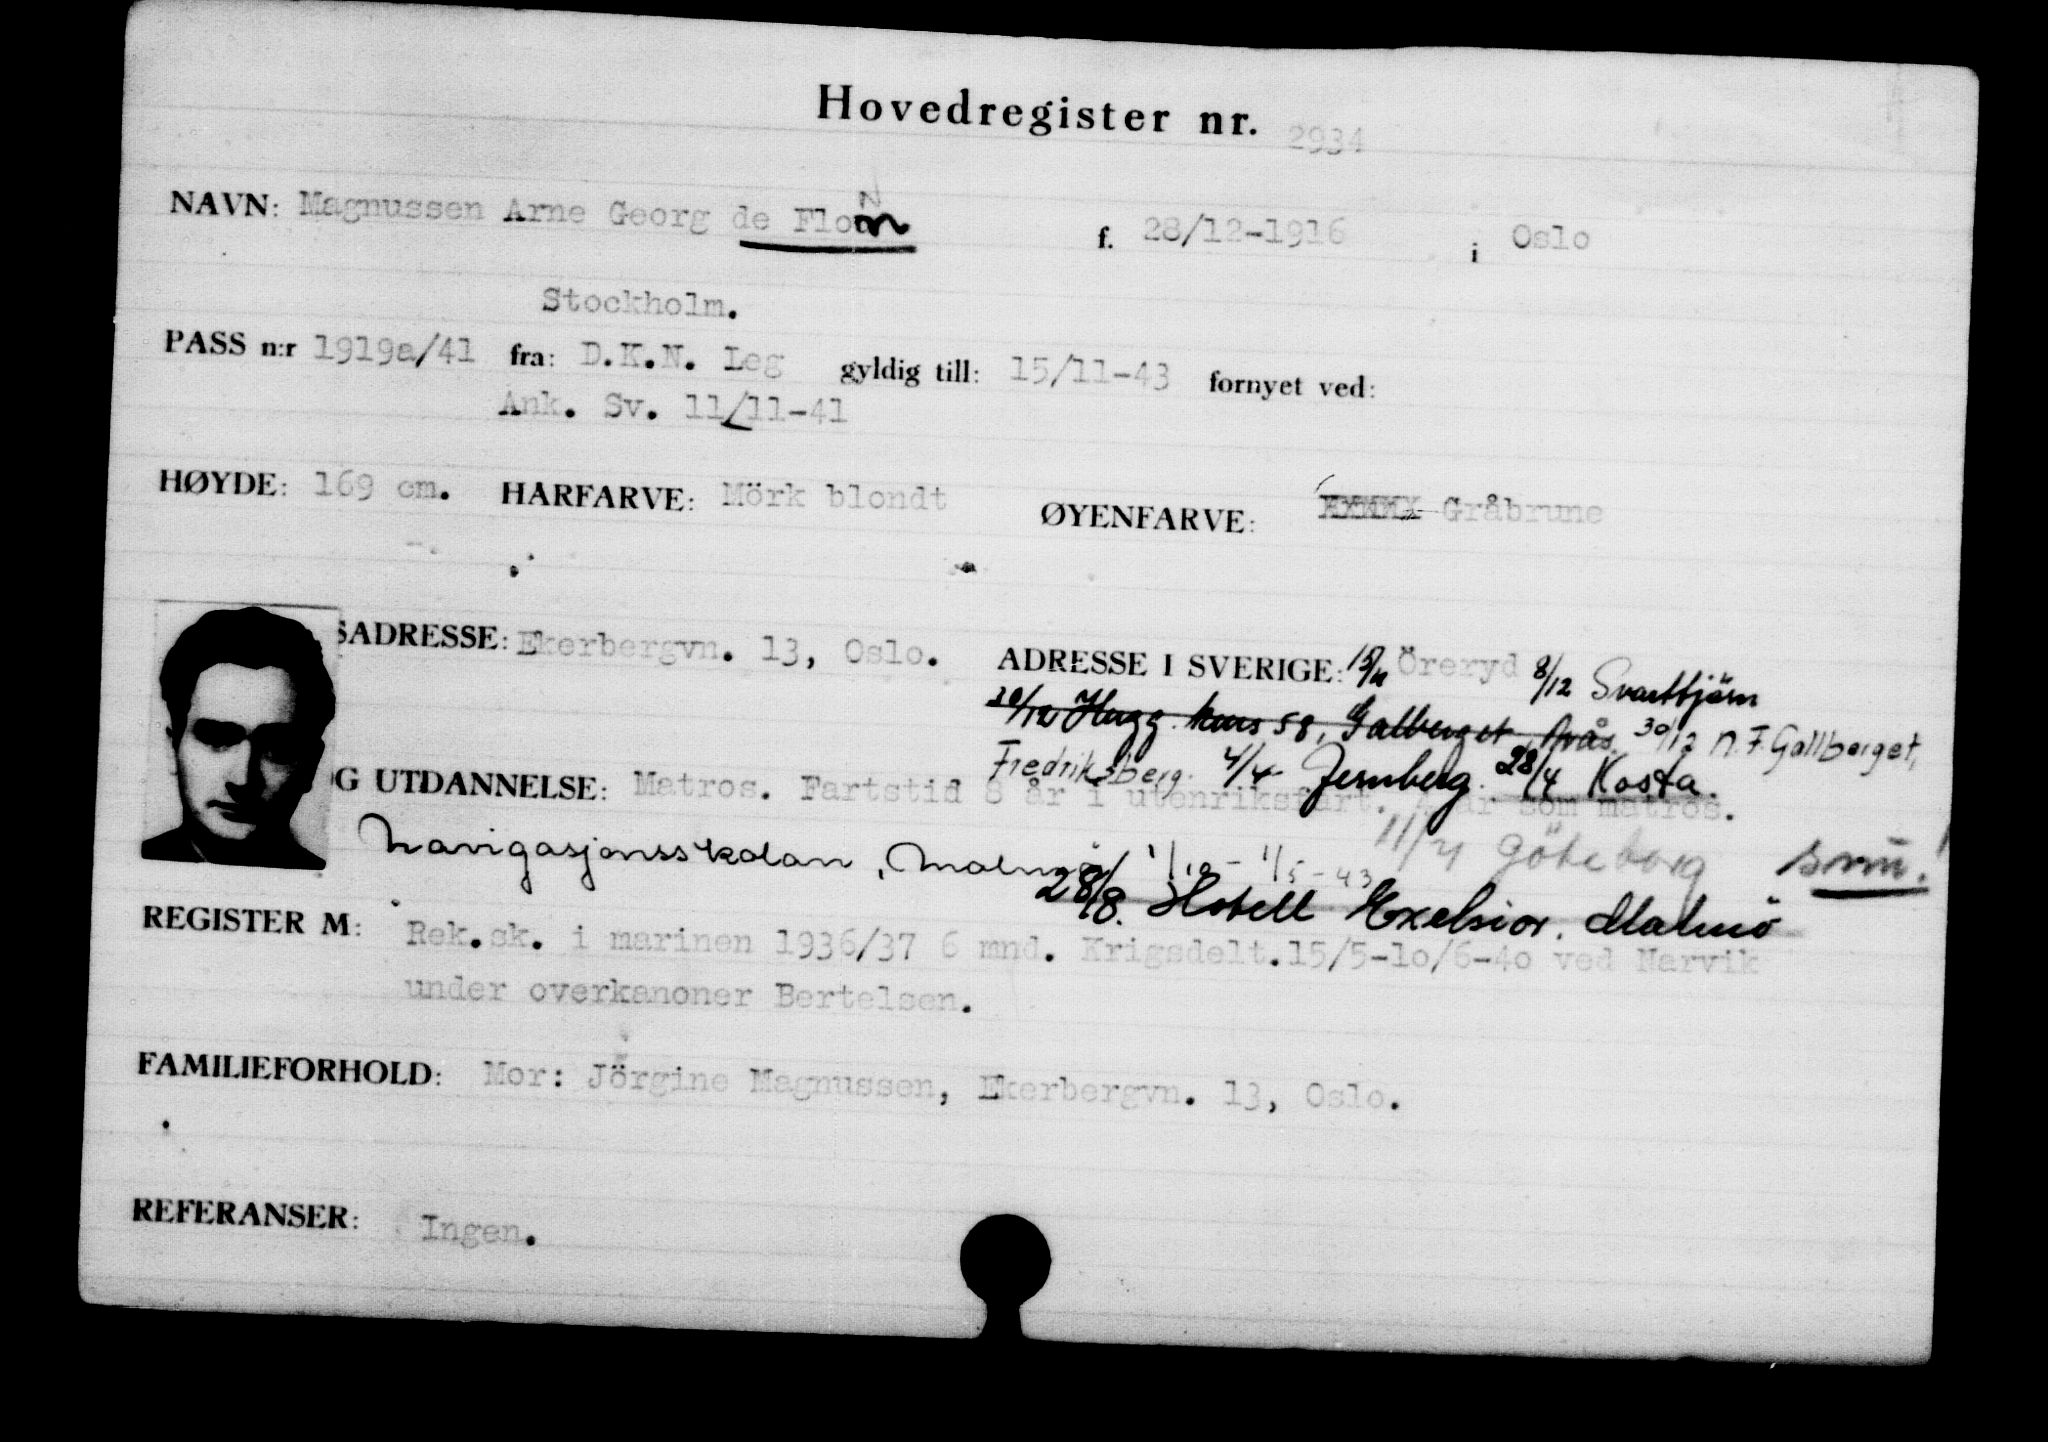 Hovedregister nr. 2934
NAVN: Magnussen Arne Georg de Flon f. 28/12-1916 i Oslo
Stockholm.
PASS n:r 1919a/41 fra: D.K.N. Leg gyldig till: 15/11-43 fornyet ved:
Ank. Sv. 11/11-41
HØYDE: 169 cm. HARFARVE: Mörk blondt ØYENFARVE: Gråbrune
SADRESSE: Ekerbergvn. 13, Oslo. ADRESSE I SVERIGE: Öreryd 8/12 Svarttjärn
Hugg. kurs 58, Galberget, 30/12 N.F. Gallberget,
Fredriksberg. 4/4 Jernberg. 28/4 Kosta.
OG UTDANNELSE: Matros. Fartstid 8 år i utenriksfart. 4 år som matros.
11/4 Göteborg
Navigasjonsskolan, Malmö 1/10 - 1/5 - 43
28/8. Hotell Excelsior. Malmö
REGISTER M: Rek.sk. i marinen 1936/37 6 mnd. Krigsdelt.15/5-10/6-40 ved Narvik
under overkanoner Bertelsen.
FAMILIEFORHOLD: Mor: Jörgine Magnussen, Ekerbergvn. 13, Oslo.
REFERANSER: Ingen.